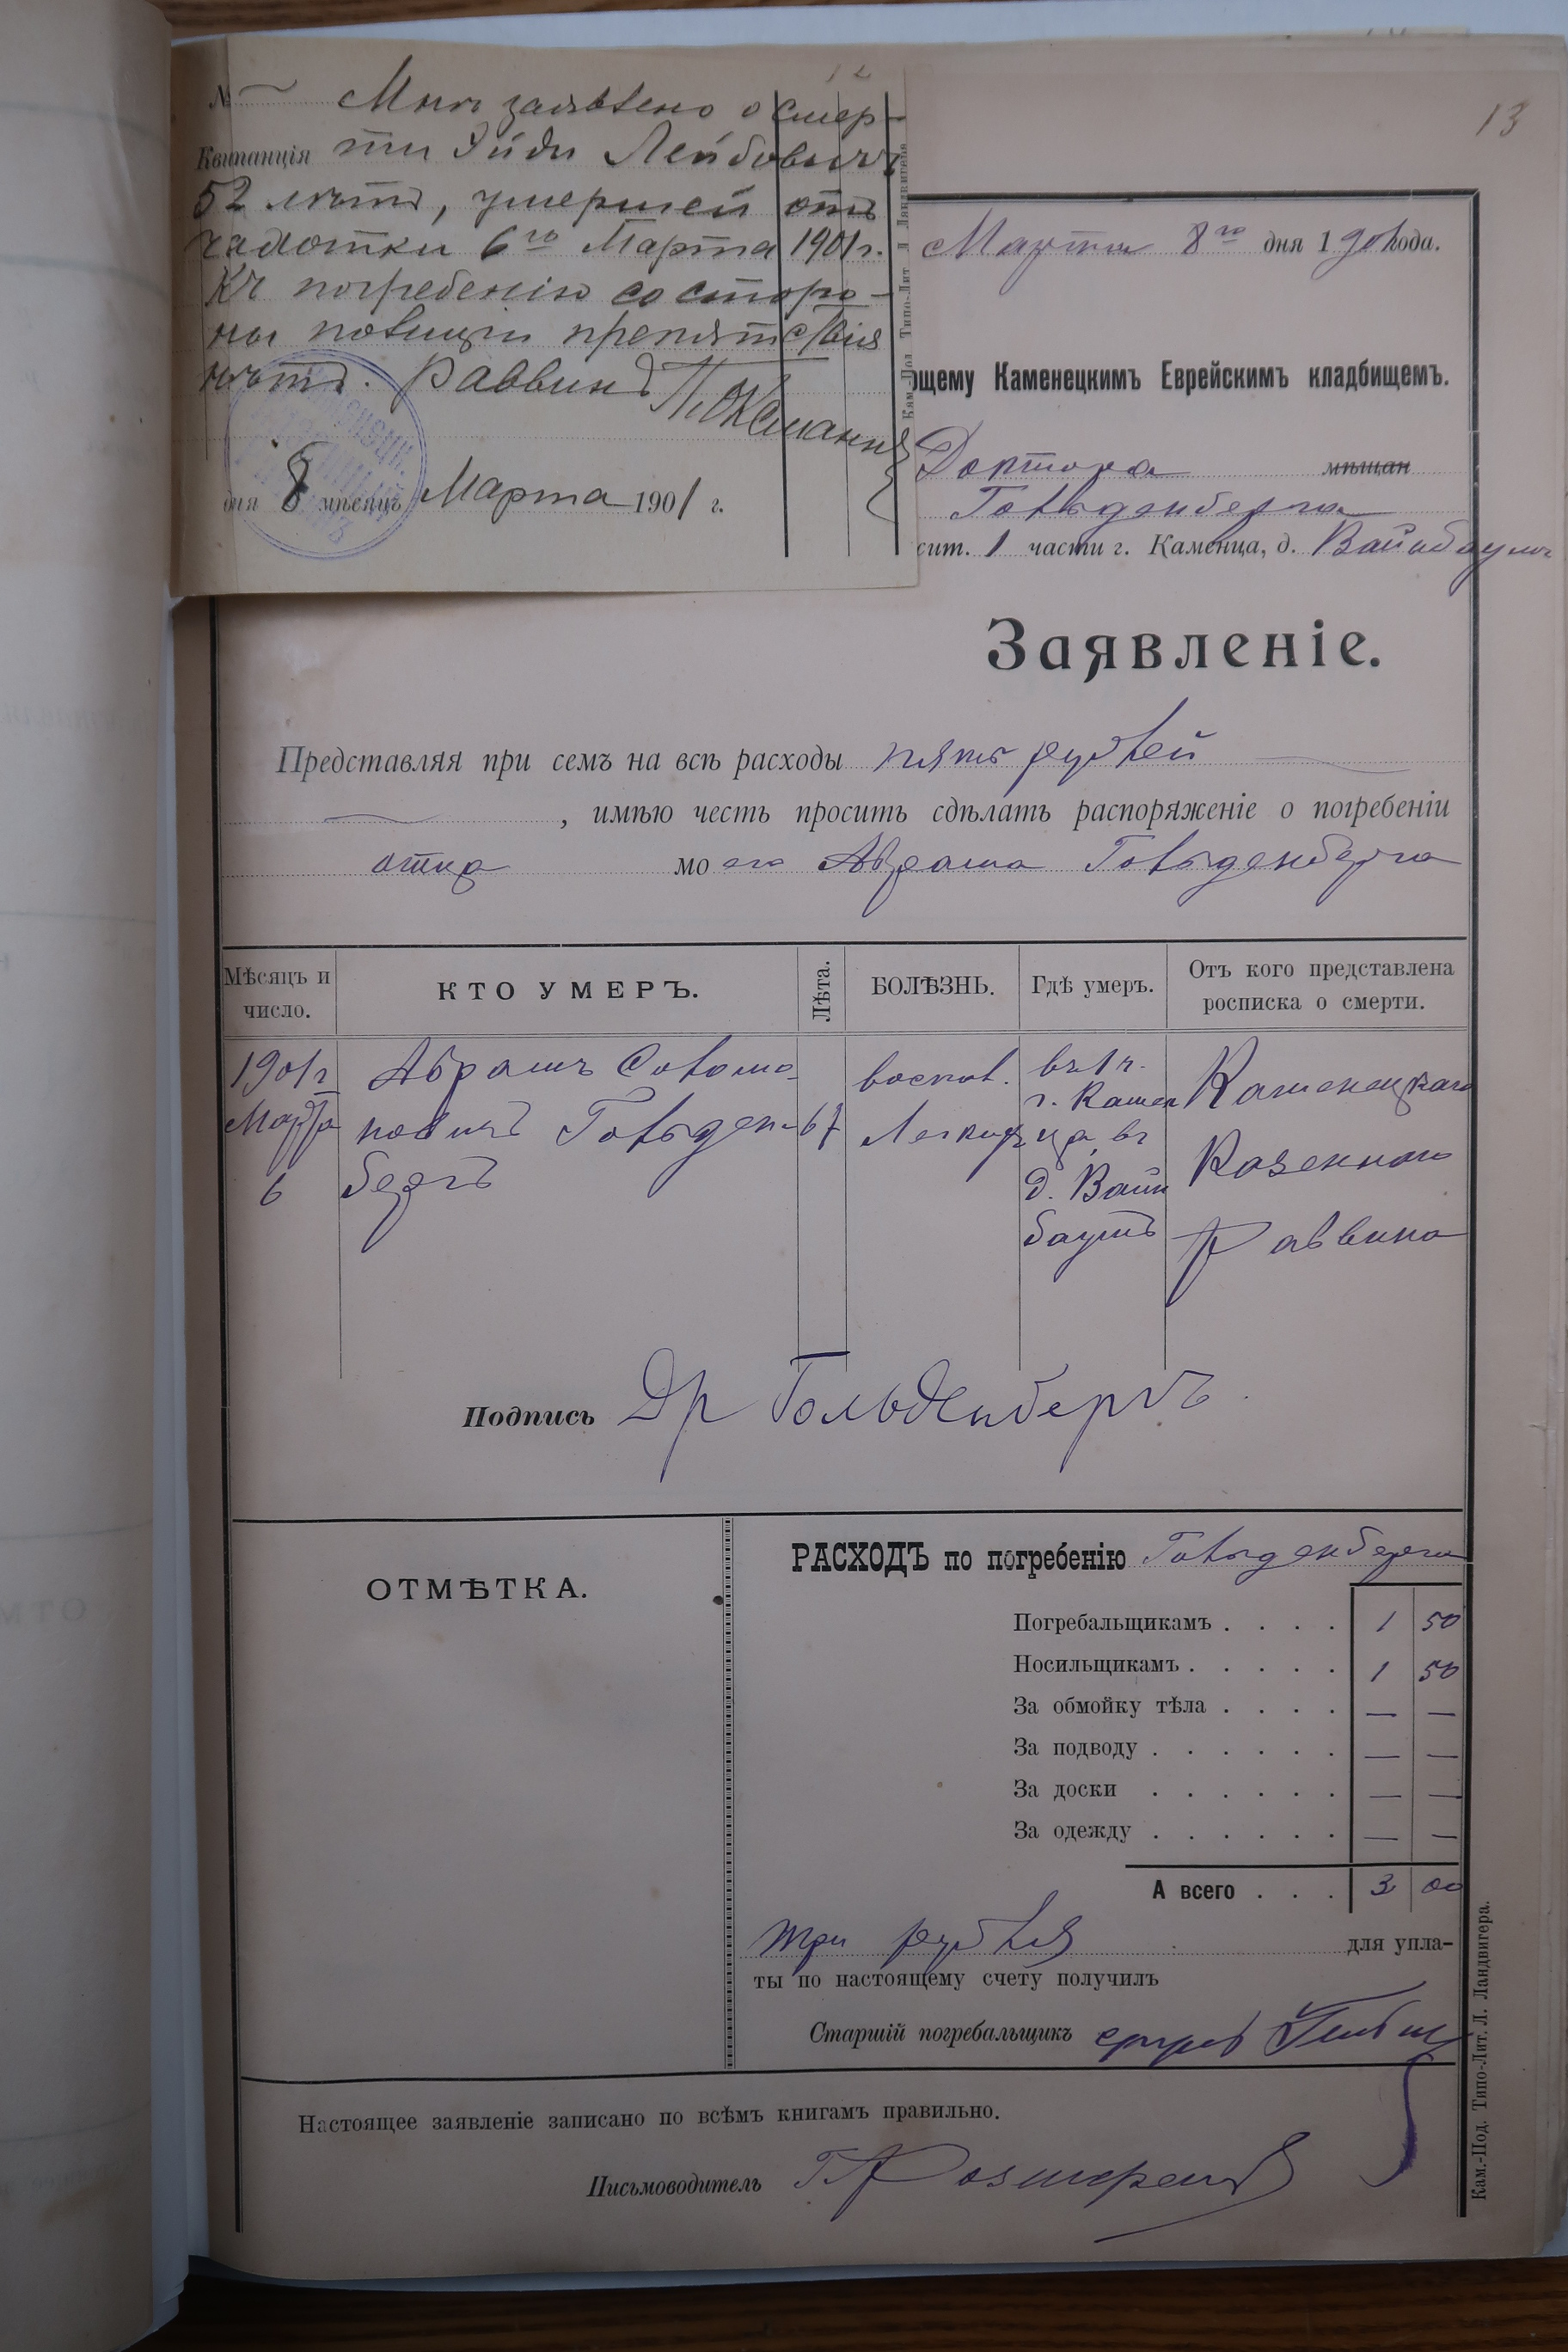 12
№ Мнѣ заявлено о смер-
Квитанція ти Эйди Лейбовичъ
52 лѣтъ, умершей отъ
чахотки 6го Марта 1901 г.
Къ погребенію со сторо-
ны полиціи препятствія
нѣтъ. Раввинъ
дня 8 мѣсяцъ Марта 1901 г.
13
Марта 8го дня 1901 года.
ющему Каменецкимъ Еврейскимъ кладбищемъ.
Доктора мѣщан
Гольденберга
сит. 1 части г. Каменца, д. Вайнбаумъ
Заявленіе.
Представляя при семъ на всѣ расходы пять рублей
, имѣю честь просить сдѣлать распоряженіе о погребеніи
отца моего Абрама Гольденберга
Мѣсяцъ и число. КТО УМЕРЪ. Лѣта. БОЛѢЗНЬ. Гдѣ умеръ. Отъ кого представлена росписка о смерти.
1901 г. Абрамъ Соломо- воспал. въ 1 ч. Каменецкаго
Марта новичъ Гольден- 67 Легкихъ г. Камен ца, въ Казеннаго
6 бергъ д. Вайн
баумъ Раввина
Подпись Др Гольденбергъ
ОТМѢТКА.
РАСХОДЪ по погребенію Гольденберга
Погребальщикамъ . . . . 1 50
Носильщикамъ . . . . . 1 50
За обмойку тѣла . . . . — —
За подводу . . . . . . — —
За доски . . . . . . — —
За одежду . . . . . . — —
А всего . . . 3 00
три рубля для упла-
ты по настоящему счету получилъ
Старшій погребальщикъ
Настоящее заявленіе записано по всѣмъ книгамъ правильно.
Письмоводитель
Кам.-Под. Типо-Лит. Л. Ландвигера.
Кам.-Под. Типо-Лит. Л. Ландвигера.